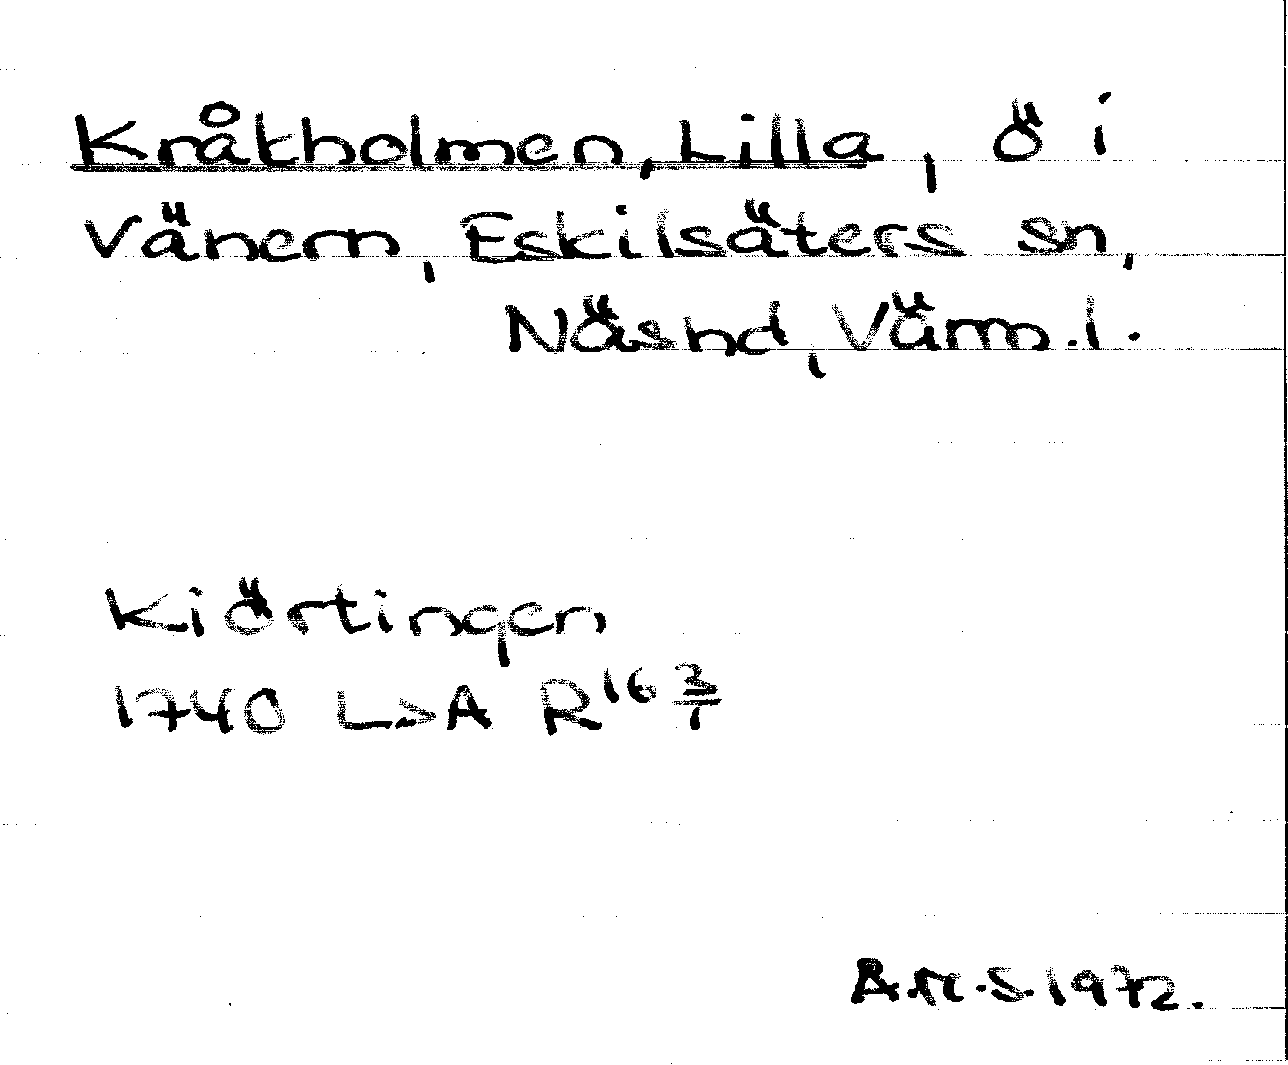 Kråkholmen, Lilla, ö i
Vänern, Eskilsäters sn,
Näshd, Värml.
Kiörtingen
1740 LSA R16 3/1
1972.